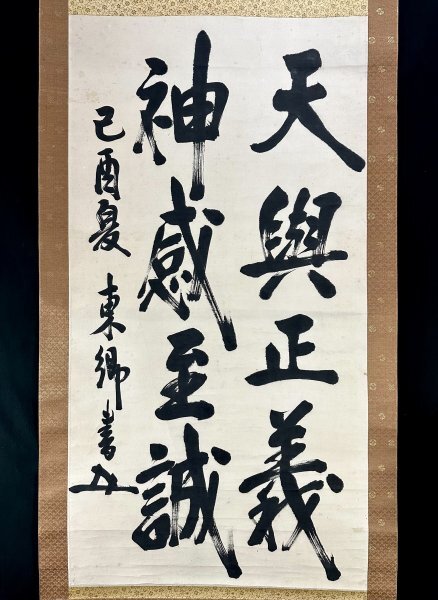 天與正義
神感至誠
己酉夏 東郷書